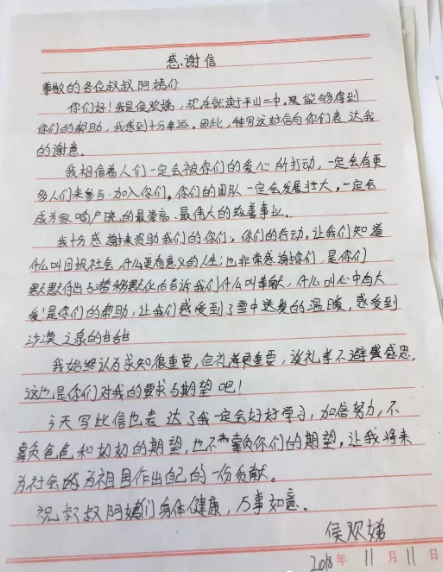 感谢信
尊敬的各位叔叔阿姨们
你们好!我是侯欢娣,现在就读于平山二中。能够得到
你们的帮助,我感到十分幸运。因此,特写这封信向你们表达我
的谢意。
我相信着人们一定会被你们的爱心所打动,一定会有更
多人们来参与、加入你们。你们的团队一定会发展壮大,一定会
成为家喻户晓的最崇高、最伟大的慈善事业。
我十分感谢来资助我们的你们,你们的行动,让我们知道
什么叫回报社会,什么更有意义的人生;也非常感谢你们,是你们
默默付出与潜移默化的告诉我们什么叫奉献,什么叫心中有大
爱!是你们的帮助,让我们感受到了雪中送炭的温暖,感受到
沙漠之泉的甘甜
我始终认为求知很重要,但礼孝更重要,谈礼孝不避感恩。
这也是你们对我的要求与期望吧!
今天写此信也表达了我一定会好好学习,加倍努力,不
辜负爸爸和奶奶的期望,也不辜负你们的期望,让我将来
为社会的为祖国作出自己的一份贡献。
祝叔叔阿姨们身体健康,万事如意。
侯欢娣
2018年11月11日